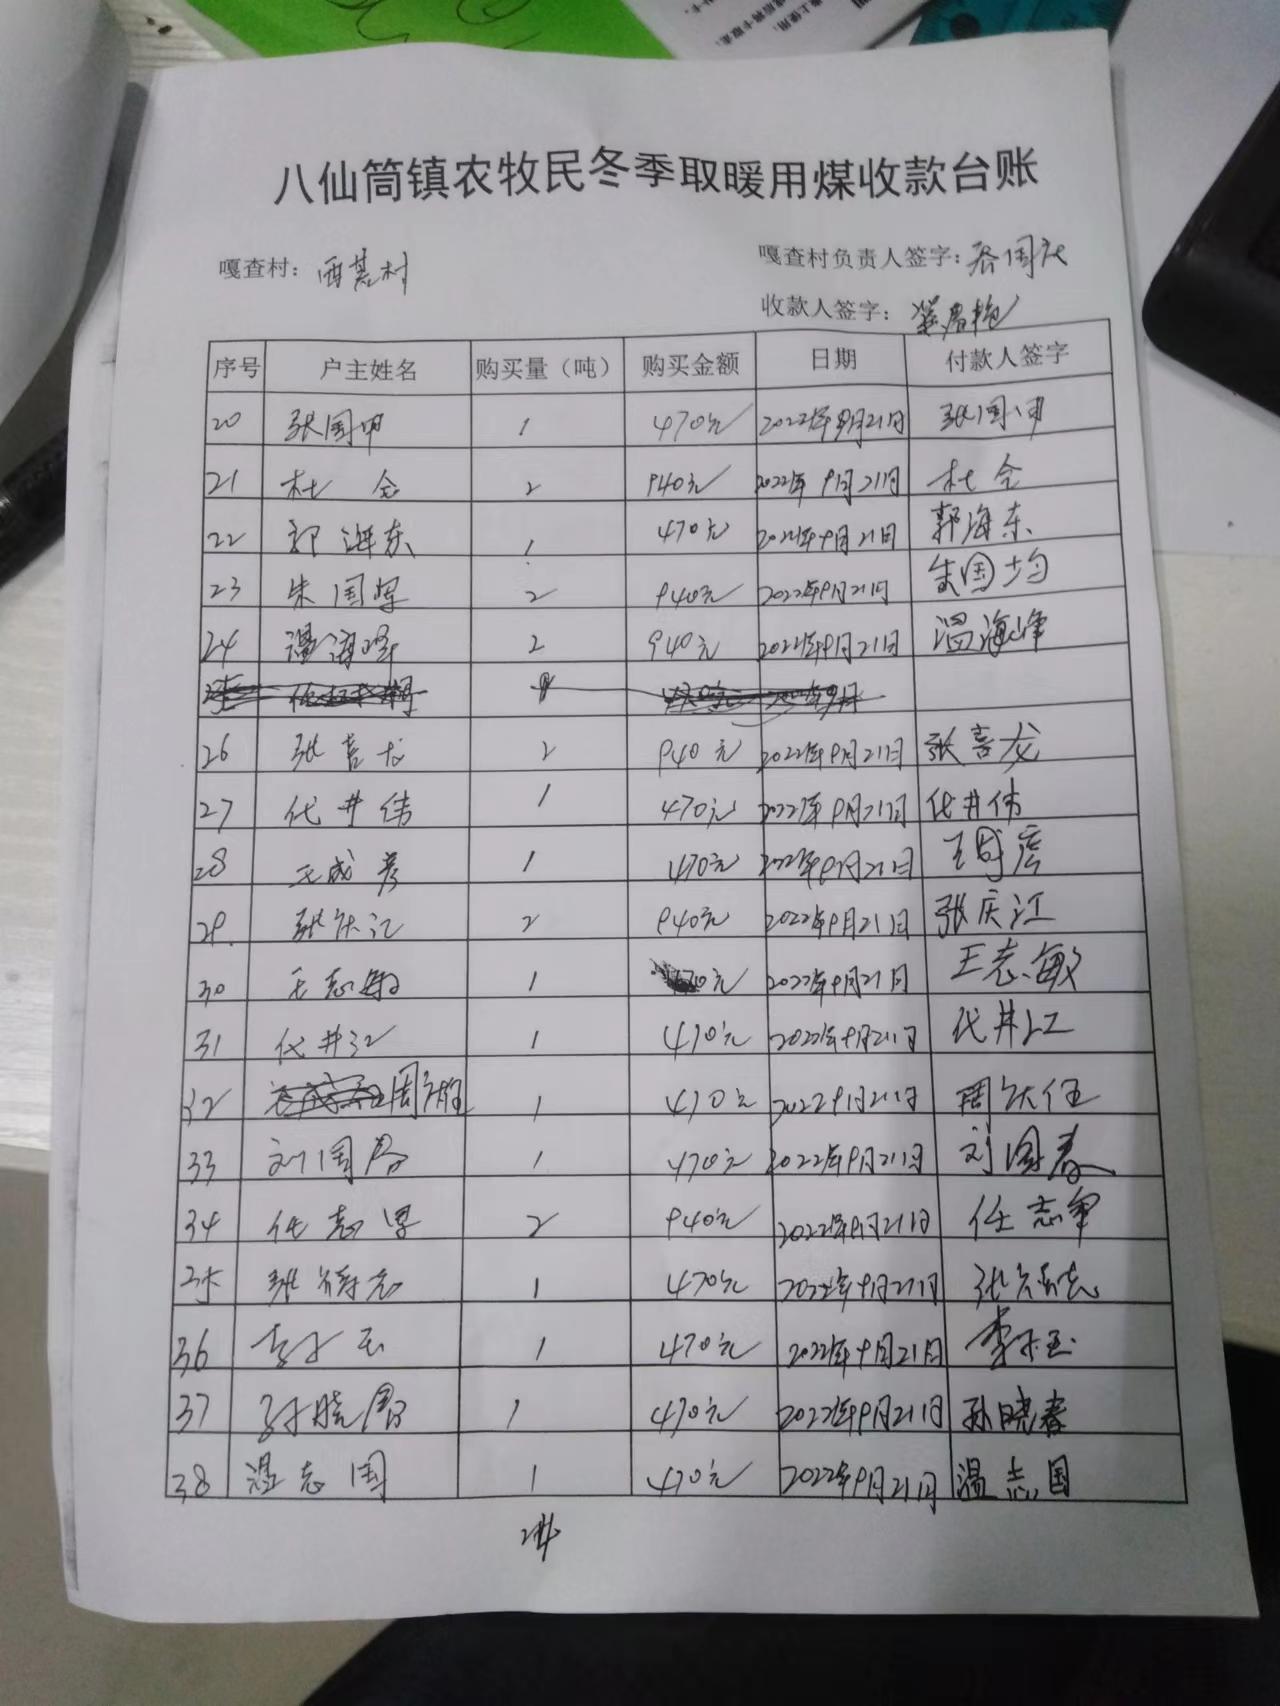 八仙筒镇农牧民冬季取暖用煤收款台账
嘎查村: 西荒村 嘎查村负责人签字: 国庆
收款人签字:
序号 户主姓名 购买量（吨） 购买金额 日期 付款人签字
20 张国申 1 470元 2022年9月21日 张国申
21 杜会 2 940元 2022年9月21日 杜会
22 郭海东 1 470元 2022年9月21日 郭海东
23 朱国军 2 940元 2022年9月21日 朱国均
24 温海峰 2 940元 2022年9月21日 温海峰
26 张喜龙 2 940元 2022年9月21日 张喜龙
27 代井伟 1 470元 2022年9月21日 代井伟
28 王成彦 1 470元 2022年9月21日
29. 张庆江 2 940元 2022年9月21日 张庆江
30 王志敏 1 470元 2022年9月21日 王志敏
31 代井江 1 470元 2022年9月21日 代井江
32 周 1 470元 2022 9月21日 周
33 刘国春 1 470元 2022年9月21日 刘国春
34 任志军 2 940元 2022年9月21日 任志军
35 张 志 1 470元 2022年9月21日 张 志
36 李 玉 1 470元 2022年9月21日 李 玉
37 孙晓春 1 470元 2022年9月21日 孙晓春
38 温志国 1 470元 2022年9月21日 温志国
24